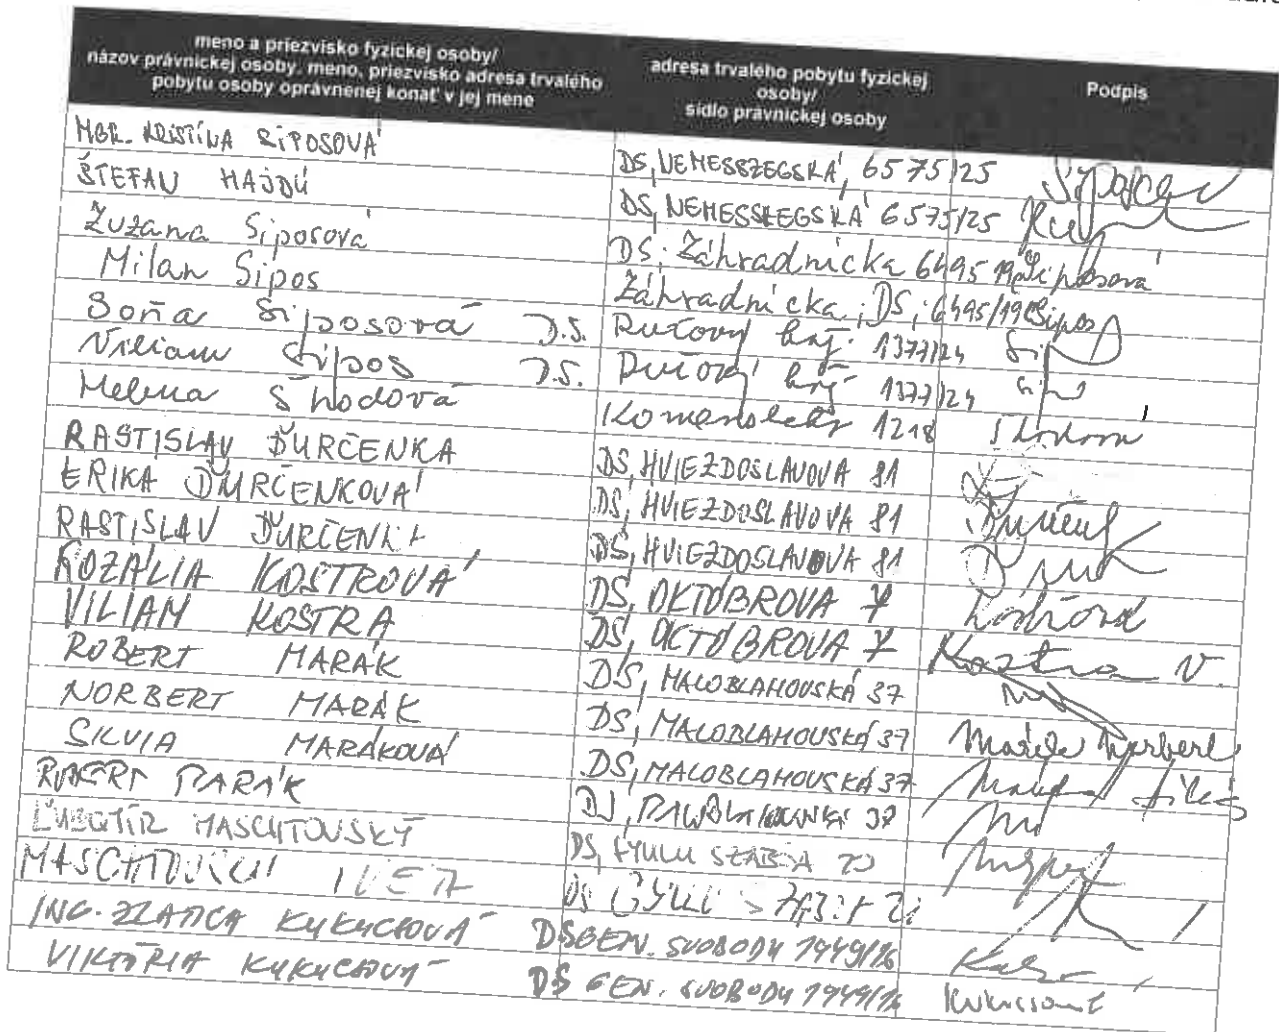 meno a priezvisko fyzickej osoby/
názov právnickej osoby, meno, priezvisko adresa trvalého
pobytu osoby oprávnenej konať v jej mene
adresa trvalého pobytu fyzickej
osoby/
sídlo právnickej osoby
Podpis
MGR. KRISTÍNA SIPOSOVÁ DS, NEMESSZEGSKÁ, 6575/25
ŠTEFAN HAJDÚ DS, NEMESSZEGSKÁ 6575/25
Zuzana Siposová DS; Záhradnícka 6495/19 Siposová
Milan Sipos Záhradnícka; DS; 6495/19 Sipos
Soňa Siposová D.S. Ružový háj 1377/24
Viliam Sipos D.S. Ružový háj 1377/24
Helena Škodová Komenského 1218 Škodová
RASTISLAV ĎURČENKA DS, HVIEZDOSLAVOVA 81
ERIKA ĎURČENKOVÁ DS, HVIEZDOSLAVOVA 81
RASTISLAV ĎURČENKA DS, HVIEZDOSLAVOVA 81
ROZÁLIA KOSTROVÁ DS, OKTÓBROVA 7 Kostrová
VILIAM KOSTRA DS, OKTÓBROVA 7 Kostra V.
ROBERT MARÁK DS, MALOBLAHOVSKÁ 37
NORBERT MARÁK DS, MALOBLAHOVSKÁ 37 Marák Norbert
SILVIA MARÁKOVÁ DS, MALOBLAHOVSKÁ 37
ROBERT MARÁK DS, 37
ĽUBOMÍR MASCHTOVSKÝ DS, GYULU SZABÓA
IVETA DS GYULU
ING. ZLATICA KUKUCSOVÁ DS GEN. SVOBODU 1949/16
VIKTÓRIA KUKUCSOVÁ DS GEN. SVOBODU 1949/16